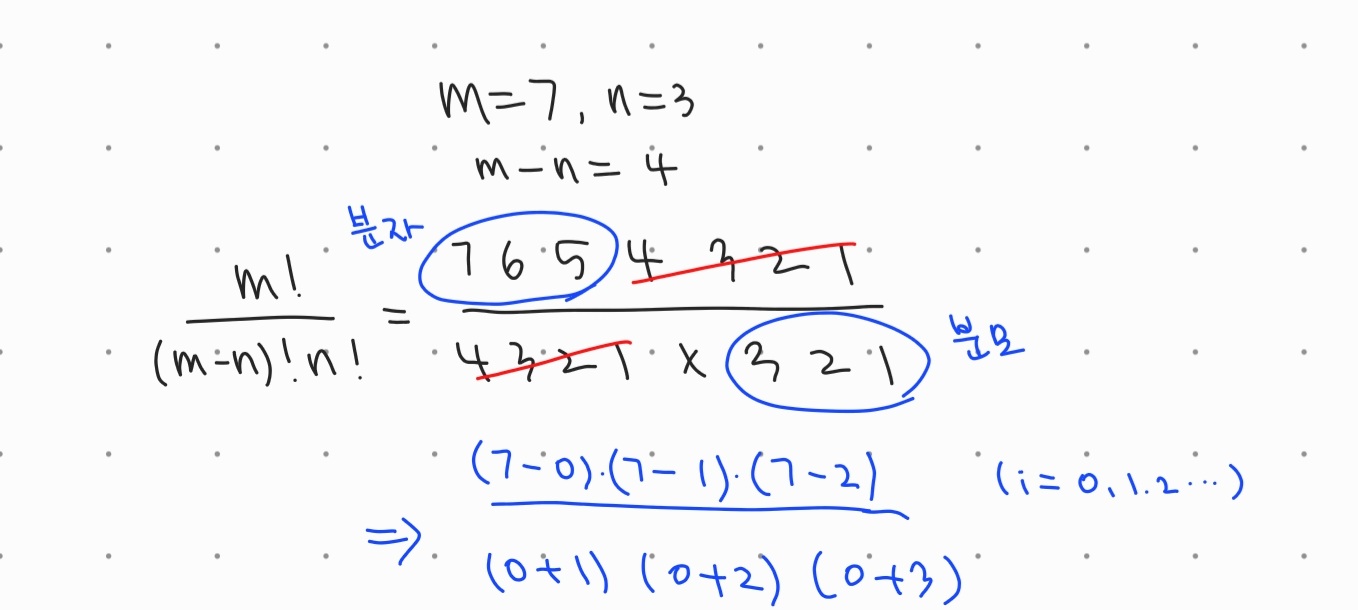 m=7, n=3
m-n=4
분자
m! / (m-n)!n! = 7 6 5 4 3 2 1 / 4 3 2 1 x 3 2 1
분모
⇒ (7-0)·(7-1)·(7-2) / (0+1) (0+2) (0+3) (i=0,1.2···)